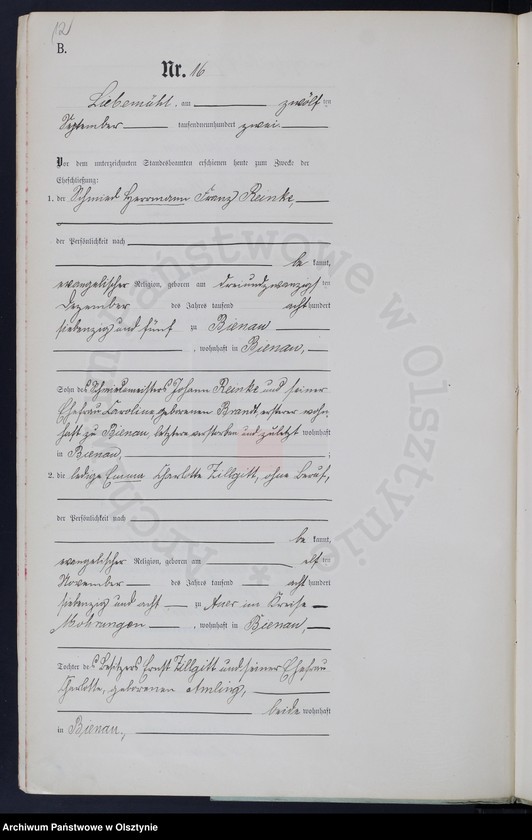 (12)
B.
Nr. 16
Liebemühl, am zwölf ten
September tausendneunhundert zwei
Vor dem unterzeichneten Standesbeamten erschienen heute zum Zwecke der
Eheschließung:
1. der Schmied Herrmann Franz Reinke,
der Persönlichkeit nach
be kannt,
evangelischer Religion, geboren am dreiundzwanzigs ten
Dezember des Jahres tausend acht hundert
siebenzig und fünf zu Bienau
, wohnhaft in Bienau,
Sohn des Schmiedemeisters Johann Reinke und seiner
Ehefrau Caroline, geborenen Brandt, ersterer wohn-
haft zu Bienau, letztere verstorben und zuletzt wohnhaft
in Bienau, ;
2. die ledige Emma Charlotte Tillgitt, ohne Beruf,
der Persönlichkeit nach
be kannt,
evangelischer Religion, geboren am elf ten
November des Jahres tausend acht hundert
siebenzig und acht zu Auer im Kreise
Mohrungen , wohnhaft in Bienau,
Tochter des Besitzers Ernst Tillgitt und seiner Ehefrau
Charlotte, geborenen Amling,
beide wohnhaft
in Bienau,
Archiwum Państwowe w Olsztynie
Archiwum Państwowe w Olsztynie